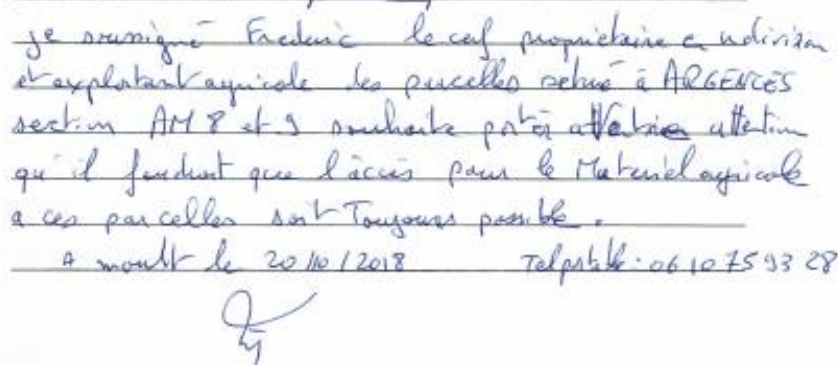 je soussigné Frederic le cerf propriétaire en indivision
et exploitant agricole des parcelles setué à ARGENCES
section AM 8 et 9 souhaite porter a attention
qu'il faudrait que l'accès pour le Materiel agricole
a ces parcelles soit Toujours possible.
A moult le 20/10/2018 Tel portable : 06 10 75 93 28